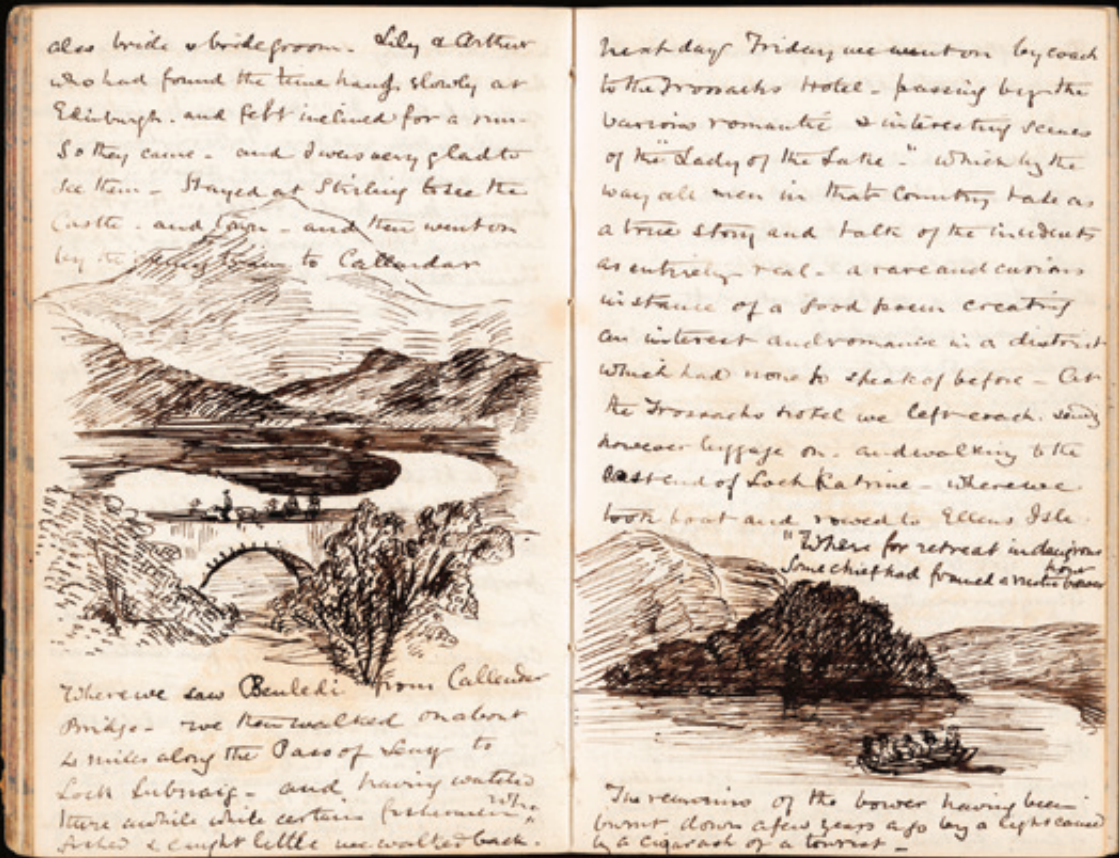 also bride & bridegroom. Lily & Arthur
who had found the time hang slowly at
Edinburgh. and felt inclined for a run-
So they came - and I was very glad to
see them - Stayed at Stirling to see the
Castle - and Town - and then went on
by the to Callendar
Where we saw Benledi from Callendar
Bridge - we then walked on about
4 miles along the Pass of Leny to
Loch Lubnaig - and having watched
there awhile while certain fishermen who
fished & caught little we walked back.
next day Friday we went on by coach
to the Trossachs Hotel - passing by the
various romantic & interesting scenes
of the "Lady of the Lake -" which by the
way all men in that Country take as
a true story and talk of the incidents
as entirely real - a rare and curious
instance of a good poem creating
an interest and romance in a district
which had none to speak of before - At
the Trossachs Hotel we left coach. sending
however luggage on. and walking to the
East end of Loch Katrine - where we
took boat and rowed to Ellens Isle.
"Where for retreat in dangerous hour
Some chief had framed a rustic bower
The remains of the bower having been
burnt down a few years ago by a light caused
by a cigar ash of a tourist -